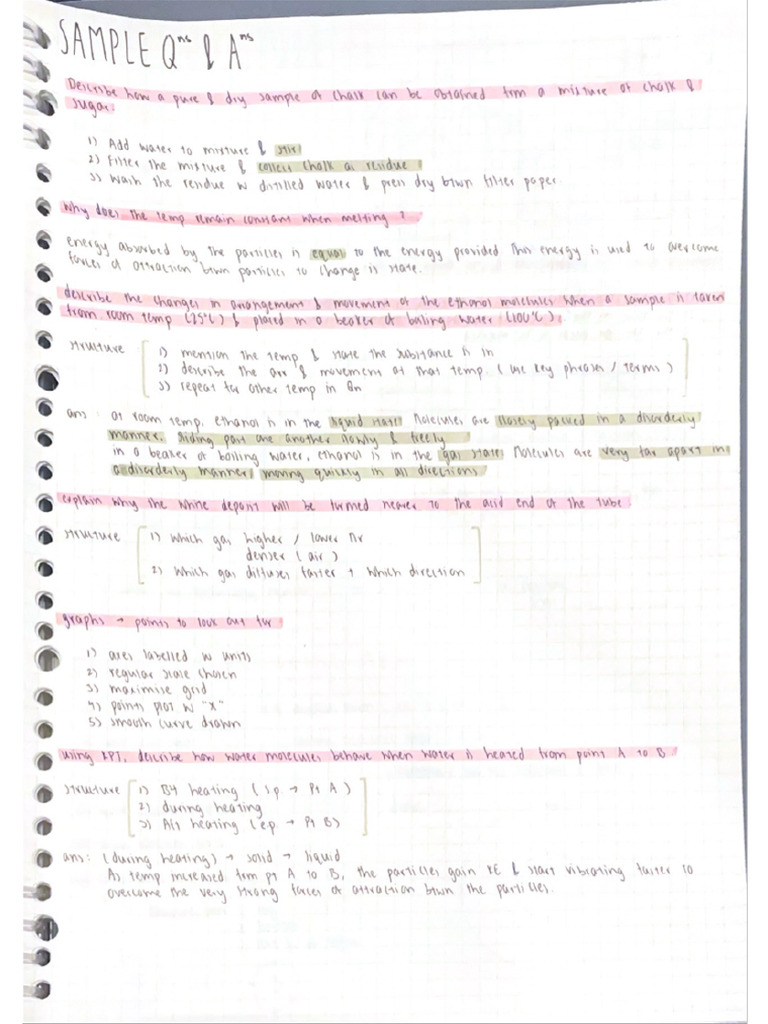 SAMPLE Qns & Ans
Describe how a pure & dry sample of chalk can be obtained from a mixture of chalk &
sugar.
1) Add water to mixture & stir
2) Filter the mixture & collect chalk as residue
3) Wash the residue w distilled water & press dry btwn filter paper.
Why does the temp remain constant when melting?
energy absorbed by the particles is equal to the energy provided. This energy is used to overcome
forces of attraction btwn particles to change its state.
describe the changes in arrangement & movement of the ethanol molecules when a sample is taken
from room temp (25°C) & placed in a beaker of boiling water (100°C).
structure
1) mention the temp & state the substance is in
2) describe the arr & movement at that temp. (use key phrases / terms)
3) repeat for other temp in Qn
ans: at room temp, ethanol is in the liquid state. Molecules are closely packed in a disorderly
manner, sliding past one another slowly & freely
in a beaker of boiling water, ethanol is in the gas state. Molecules are very far apart in
a disorderly manner, moving quickly in all directions
explain why the white deposit will be formed nearer to the acid end of the tube.
structure
1) which gas higher / lower Mr
denser (air)
2) which gas diffuses faster + which direction
graphs → points to look out for
1) axes labelled w units
2) regular scale chosen
3) maximise grid
4) points plot w "x"
5) smooth curve drawn
using KPT, describe how water molecules behave when water is heated from point A to B
structure
1) B4 heating (sp. → Pt A)
2) during heating
3) Aft heating (ep. → Pt B)
ans: (during heating) → solid → liquid
As temp increased from pt A to B, the particles gain KE & start vibrating faster to
overcome the very strong forces of attraction btwn the particles.